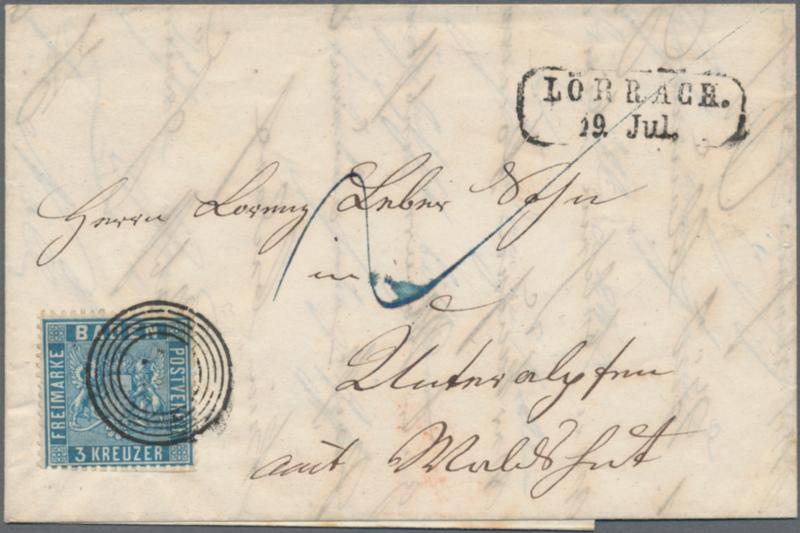 LÖRRACH.
19. Jul.
Herrn Lorenz Leber Sohn
in
Unteralpfen
amt Waldshut
BADEN
FREIMARKE
POSTVEREIN
3 KREUZER